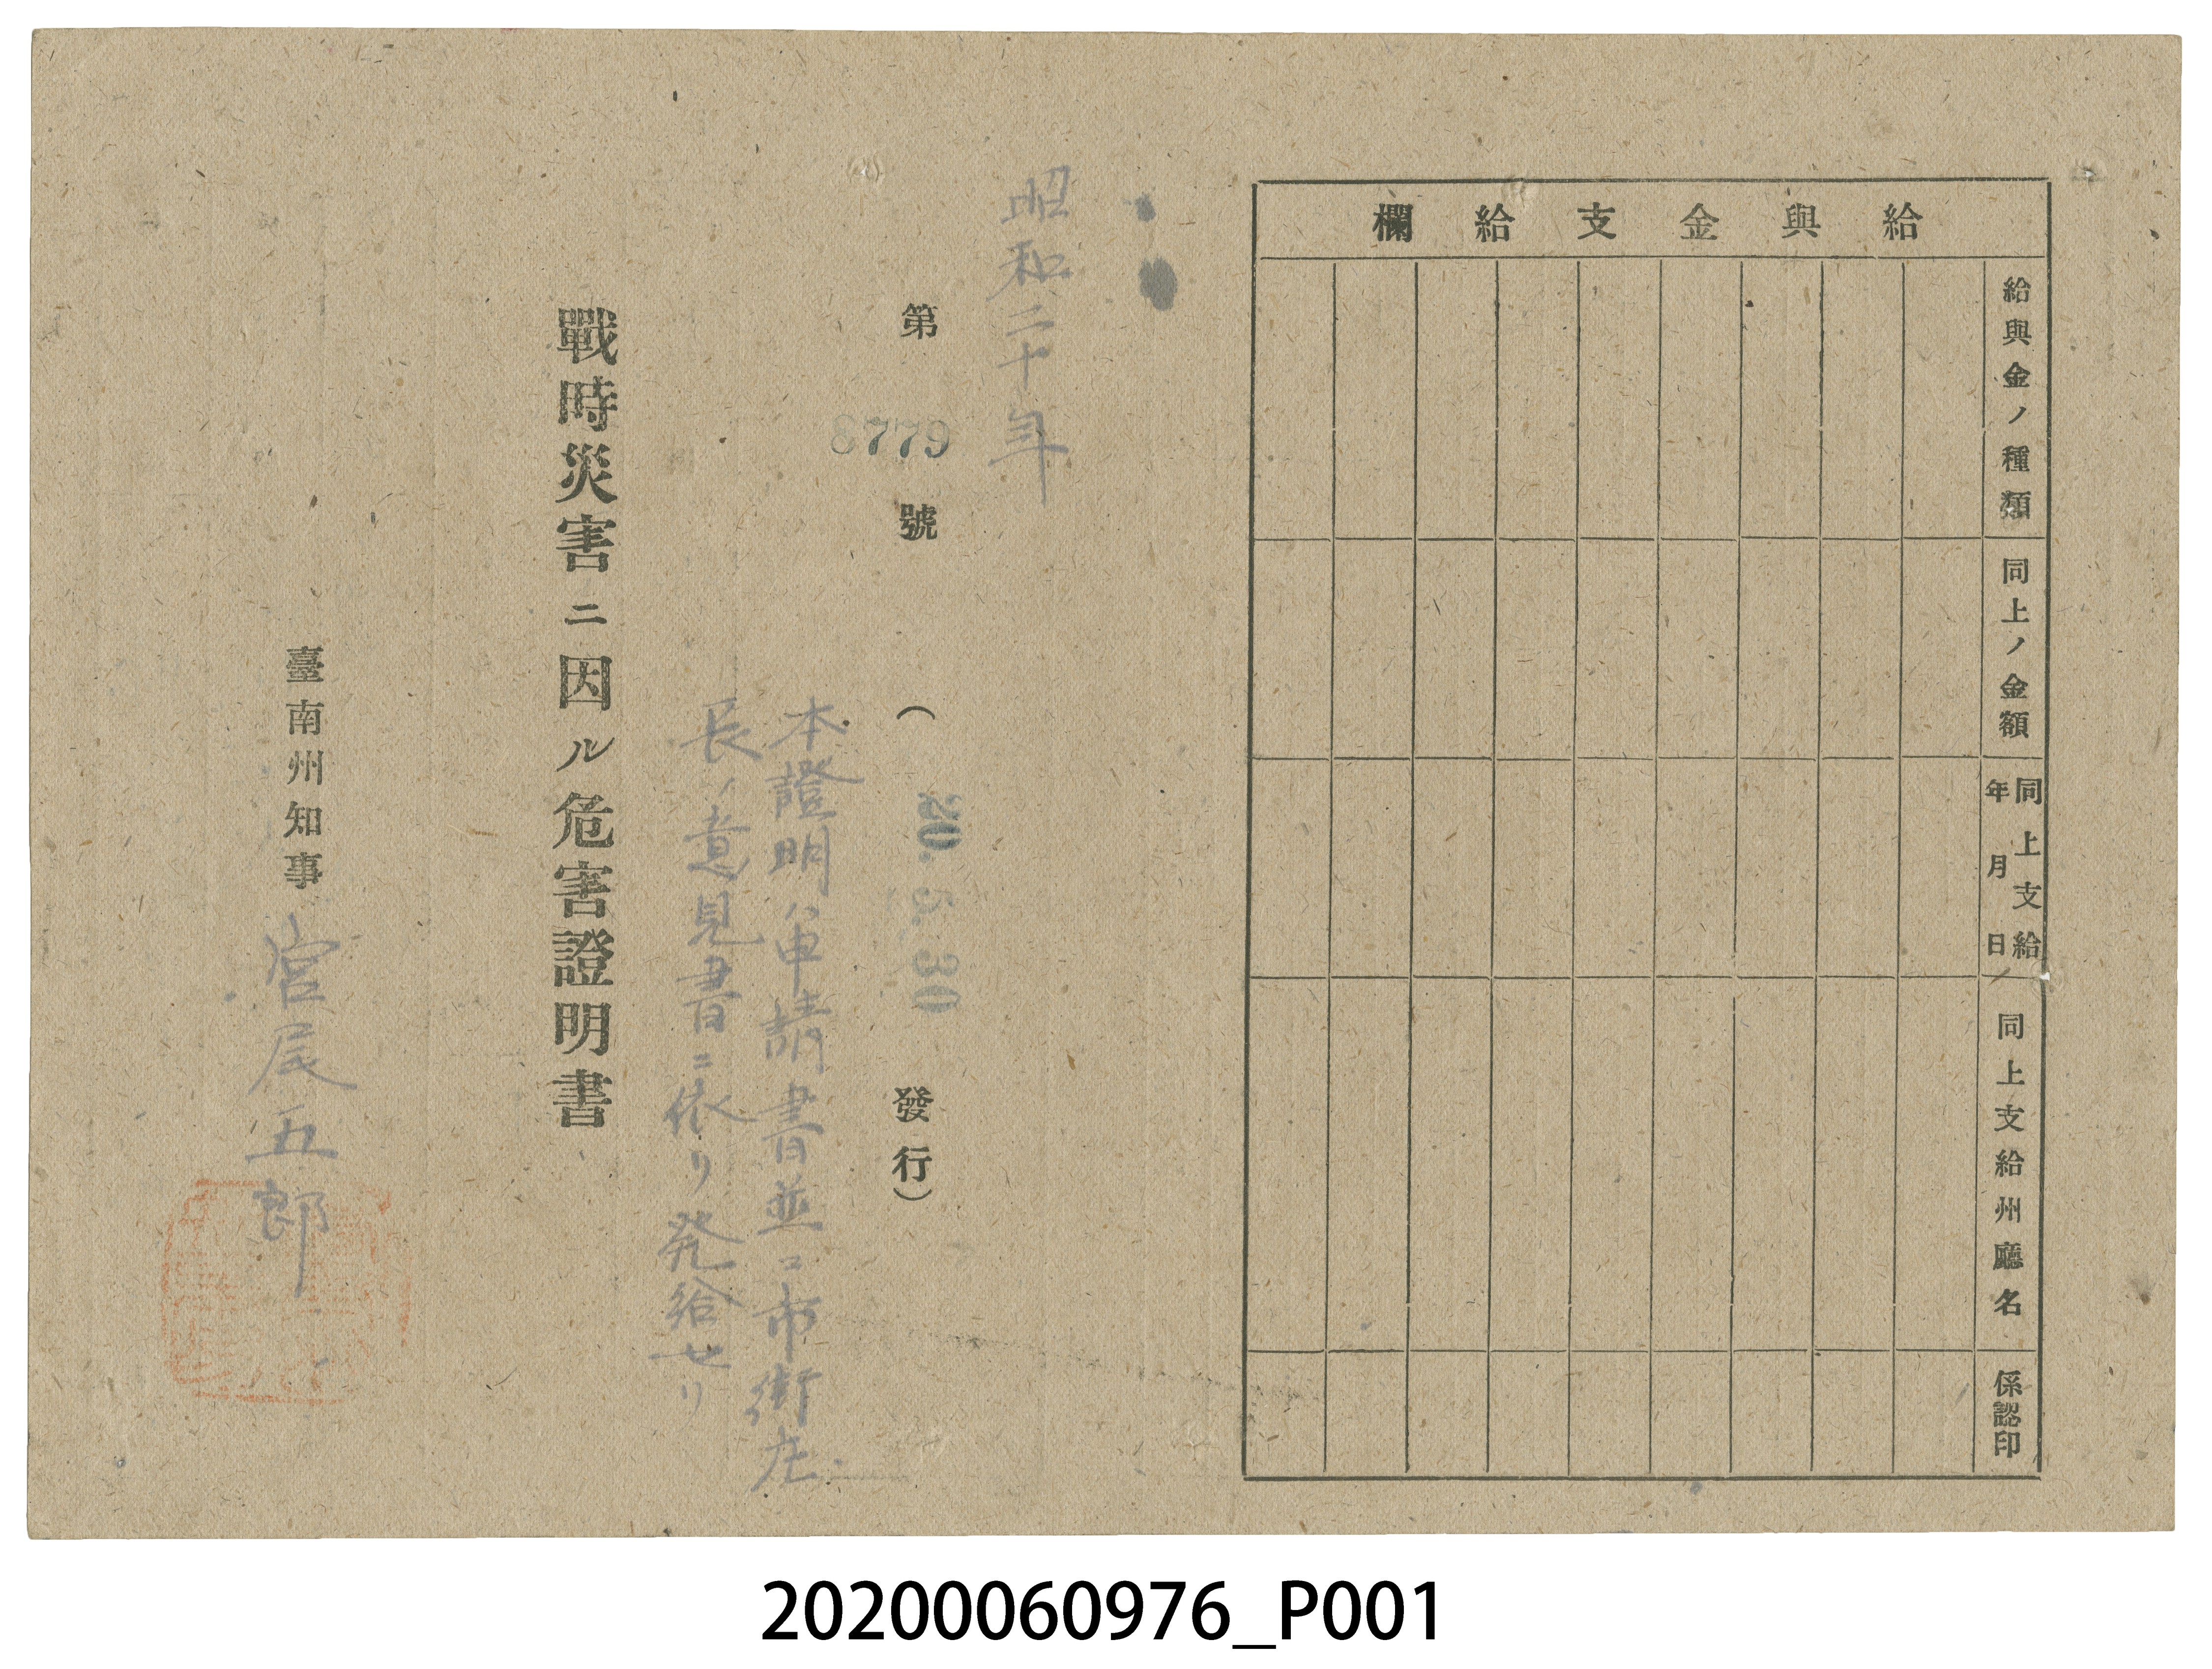 給與金支給欄
給與金ノ種類
同上ノ金額
同上支給年月日
同上支給州廳名
係認印
昭和二十年
第8779號(20.5.30發行)
本證明ハ申請書並ニ市街庄
長ノ意見書ニ依リ発給セリ
戰時災害ニ因ル危害證明書
臺南州知事 宮尾五郎
20200060976_P001